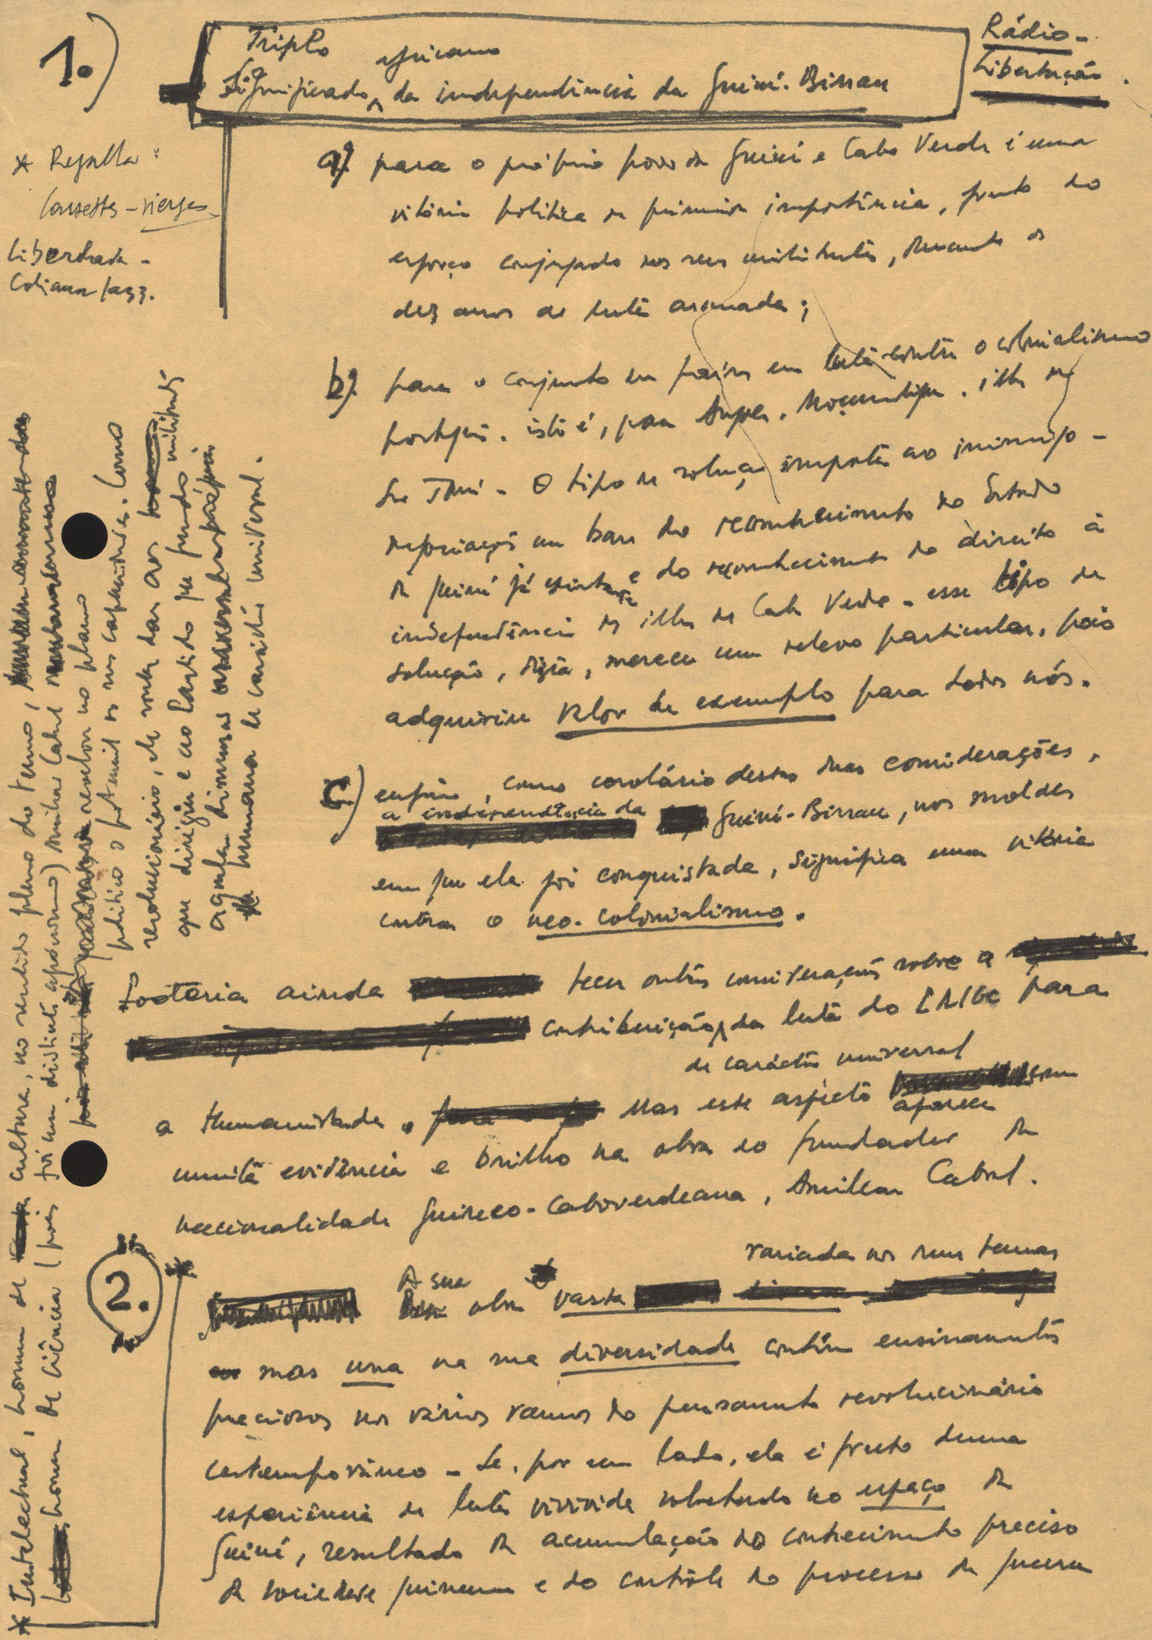 1.)
Triplo
Significado africano da independência da Guiné-Bissau
Rádio-
Libertação.
* Regalla:
Cassettes-vierges
Liberdade -
Cobiana Jazz.
a) para o próprio povo da Guiné e Cabo Verde é uma
vitória política de primeira importância, fruto do
esforço conjugado dos seus militantes, durante os
dez anos de luta armada;
b) para o conjunto de países em luta contra o colonialismo
português, isto é, para Angola, Moçambique, ilhas de
São Tomé - O tipo de solução imposta ao inimigo -
negociação na base do reconhecimento do Estado
da Guiné já existente e do reconhecimento do direito à
independência das ilhas de Cabo Verde - esse tipo de
solução, dizia, merece um relevo particular, pois
adquiriu valor de exemplo para todos nós.
c) enfim, como corolário destas duas considerações,
a independência da Guiné-Bissau, nos moldes
em que ela foi conquistada, significa uma vitória
contra o neo-colonialismo.
Gostaria ainda tecer outras considerações sobre a
contribuição da luta do PAIGC para
a Humanidade. Mas este aspecto de carácter universal aparece com
muita evidência e brilho na obra do fundador da
nacionalidade Guineo-Caboverdeana, Amílcar Cabral.
2.
* A sua obra vasta variada nos seus temas
mas una na sua diversidade contém ensinamentos
preciosos nos vários ramos do pensamento revolucionário
contemporâneo - Se, por um lado, ela é fruto duma
experiência de luta vivida sobretudo no espaço da
Guiné, resultado da acumulação do conhecimento preciso
da sociedade guineense e do contrôle do processo da guerra
* Intelectual, homem de cultura, no sentido pleno do termo,
homem de ciência (pois foi um distinto agrónomo) Amílcar Cabral
revelou no plano
político o potencial das suas capacidades. Como
revolucionário, ele soube dar aos militantes
que dirigiu e ao Partido que fundou
aquela dimensão própria
humana de carácter universal.